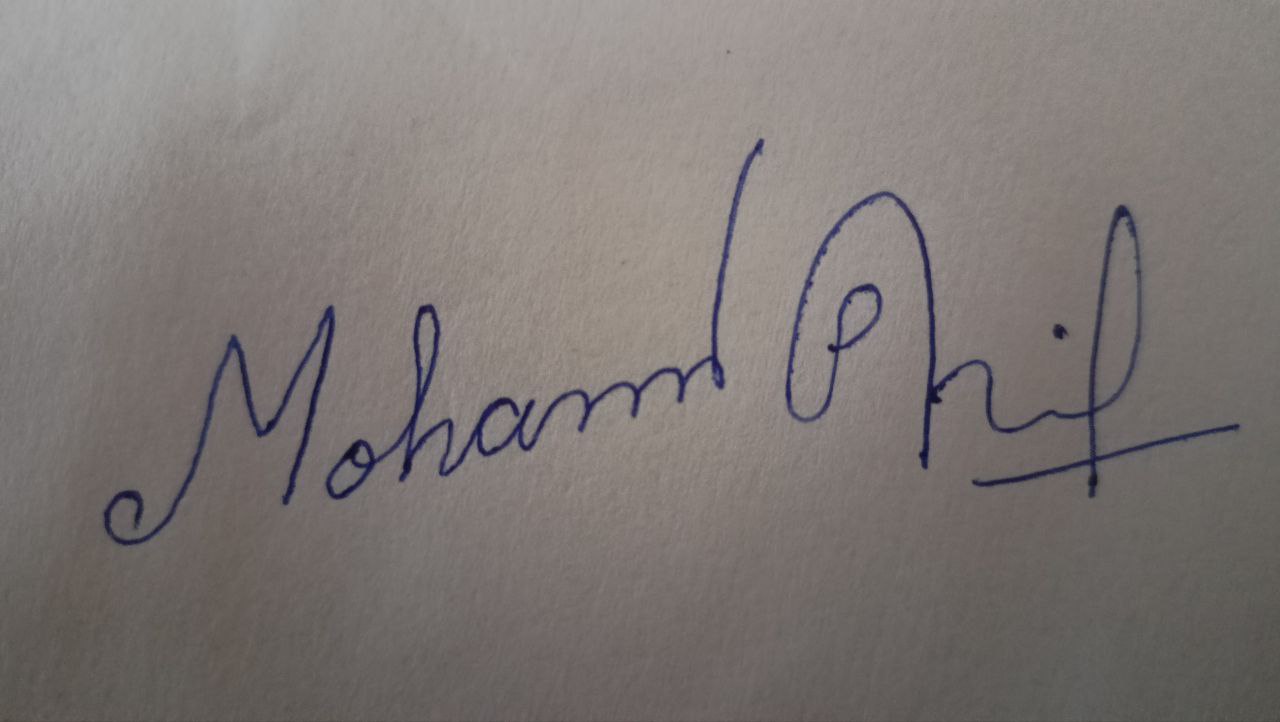 Mohamd Arif